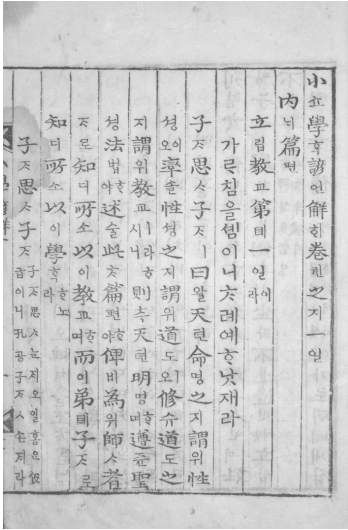 小쇼學ᄒᆞᆨ諺언解ᄒᆡ卷권之지一일
內ᄂᆡ篇편
立립敎교第뎨一일이라
가ᄅᆞ침을셤이니ᄎᆞ례예ᄒᆞᆫ낫재라
子ᄌᆞ思ᄉᆞ子ᄌᆞㅣ曰왈天텬命명之지謂위性
셩이오率솔性셩之지謂위道도ㅣ오修슈道도之
지謂위敎교ㅣ라ᄒᆞ시니則측天텬明명ᄒᆞ며遵쥰聖
셩法법ᄒᆞ야述슐此ᄎᆞ篇편ᄒᆞ야俾비爲위師ᄉᆞ者
쟈로知디所소以이敎교ᄒᆞ며而이弟뎨子ᄌᆞ로
知디所소以이學ᄒᆞᆨᄒᆞ노라
子ᄌᆞ思ᄉᆞ子ᄌᆞ
子ᄌᆞ思ᄉᆞ 일홈은伋
급이니孔공子ᄌᆞㅅ손ᄌᆞ라